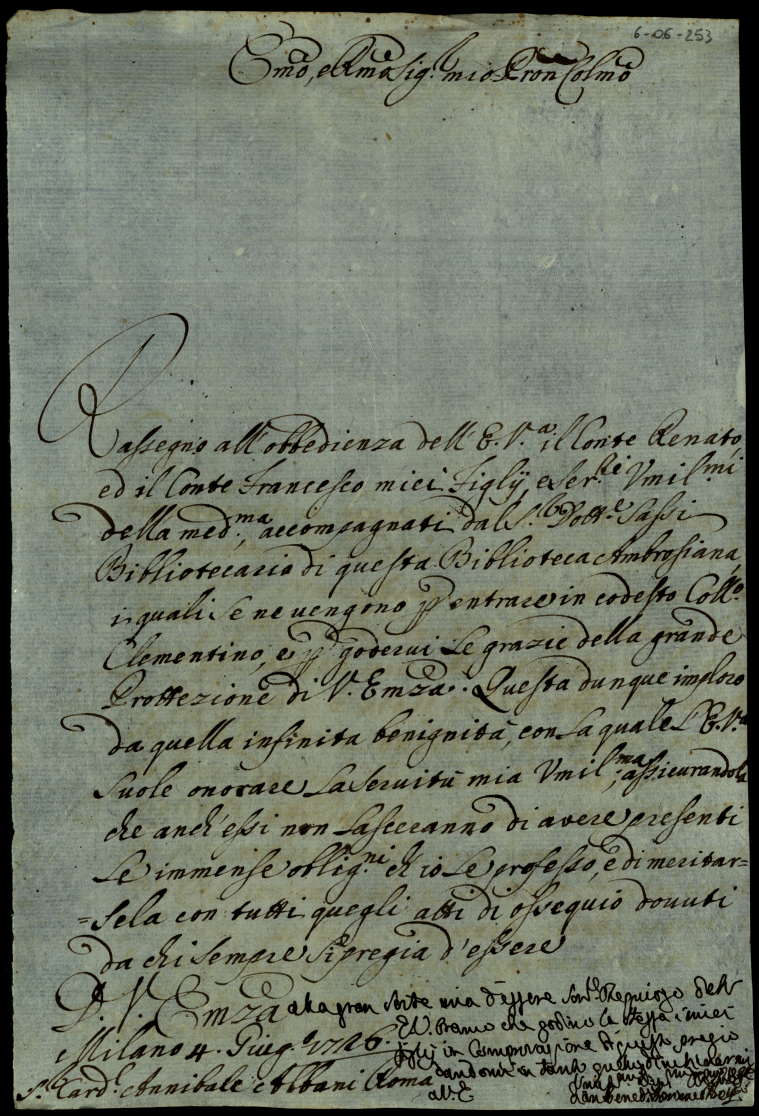 6-06-253
Emo, e Rmo Sig.r mio Pron Colmo
Rassegno all'obbedienza dell'E.V.a il Conte Renato,
ed il Conte Francesco miei Figlij, e Ser.ri Vmil.mi
della med.ma, accompagnati dal S.r Dott.e Sassi
Bibliotecario di questa Biblioteca Ambrosiana,
i quali se ne vengono p entrare in codesto Coll.o
Clementino, e p godervi le grazie della grande
Prottezione di V. Emza. Questa dunque imploro
da quella infinita benignità, con la quale l'E.V.a
suole onorare la servitù mia Vmil.ma, assicurandola
che anch'essi non lasceranno di avere presenti
le immense oblig.ni ch'io le professo, e di meritar=
=sela con tutti quegli atti di ossequio dovuti
da chi sempre si pregia d'essere
D. V. Emza alla gran sorte mia d'essere
E.V. bramo che godino la stessa i miei
Milano 4. Giug.o 1726.
figlij in
S.r Card.l Annibale Albani Roma